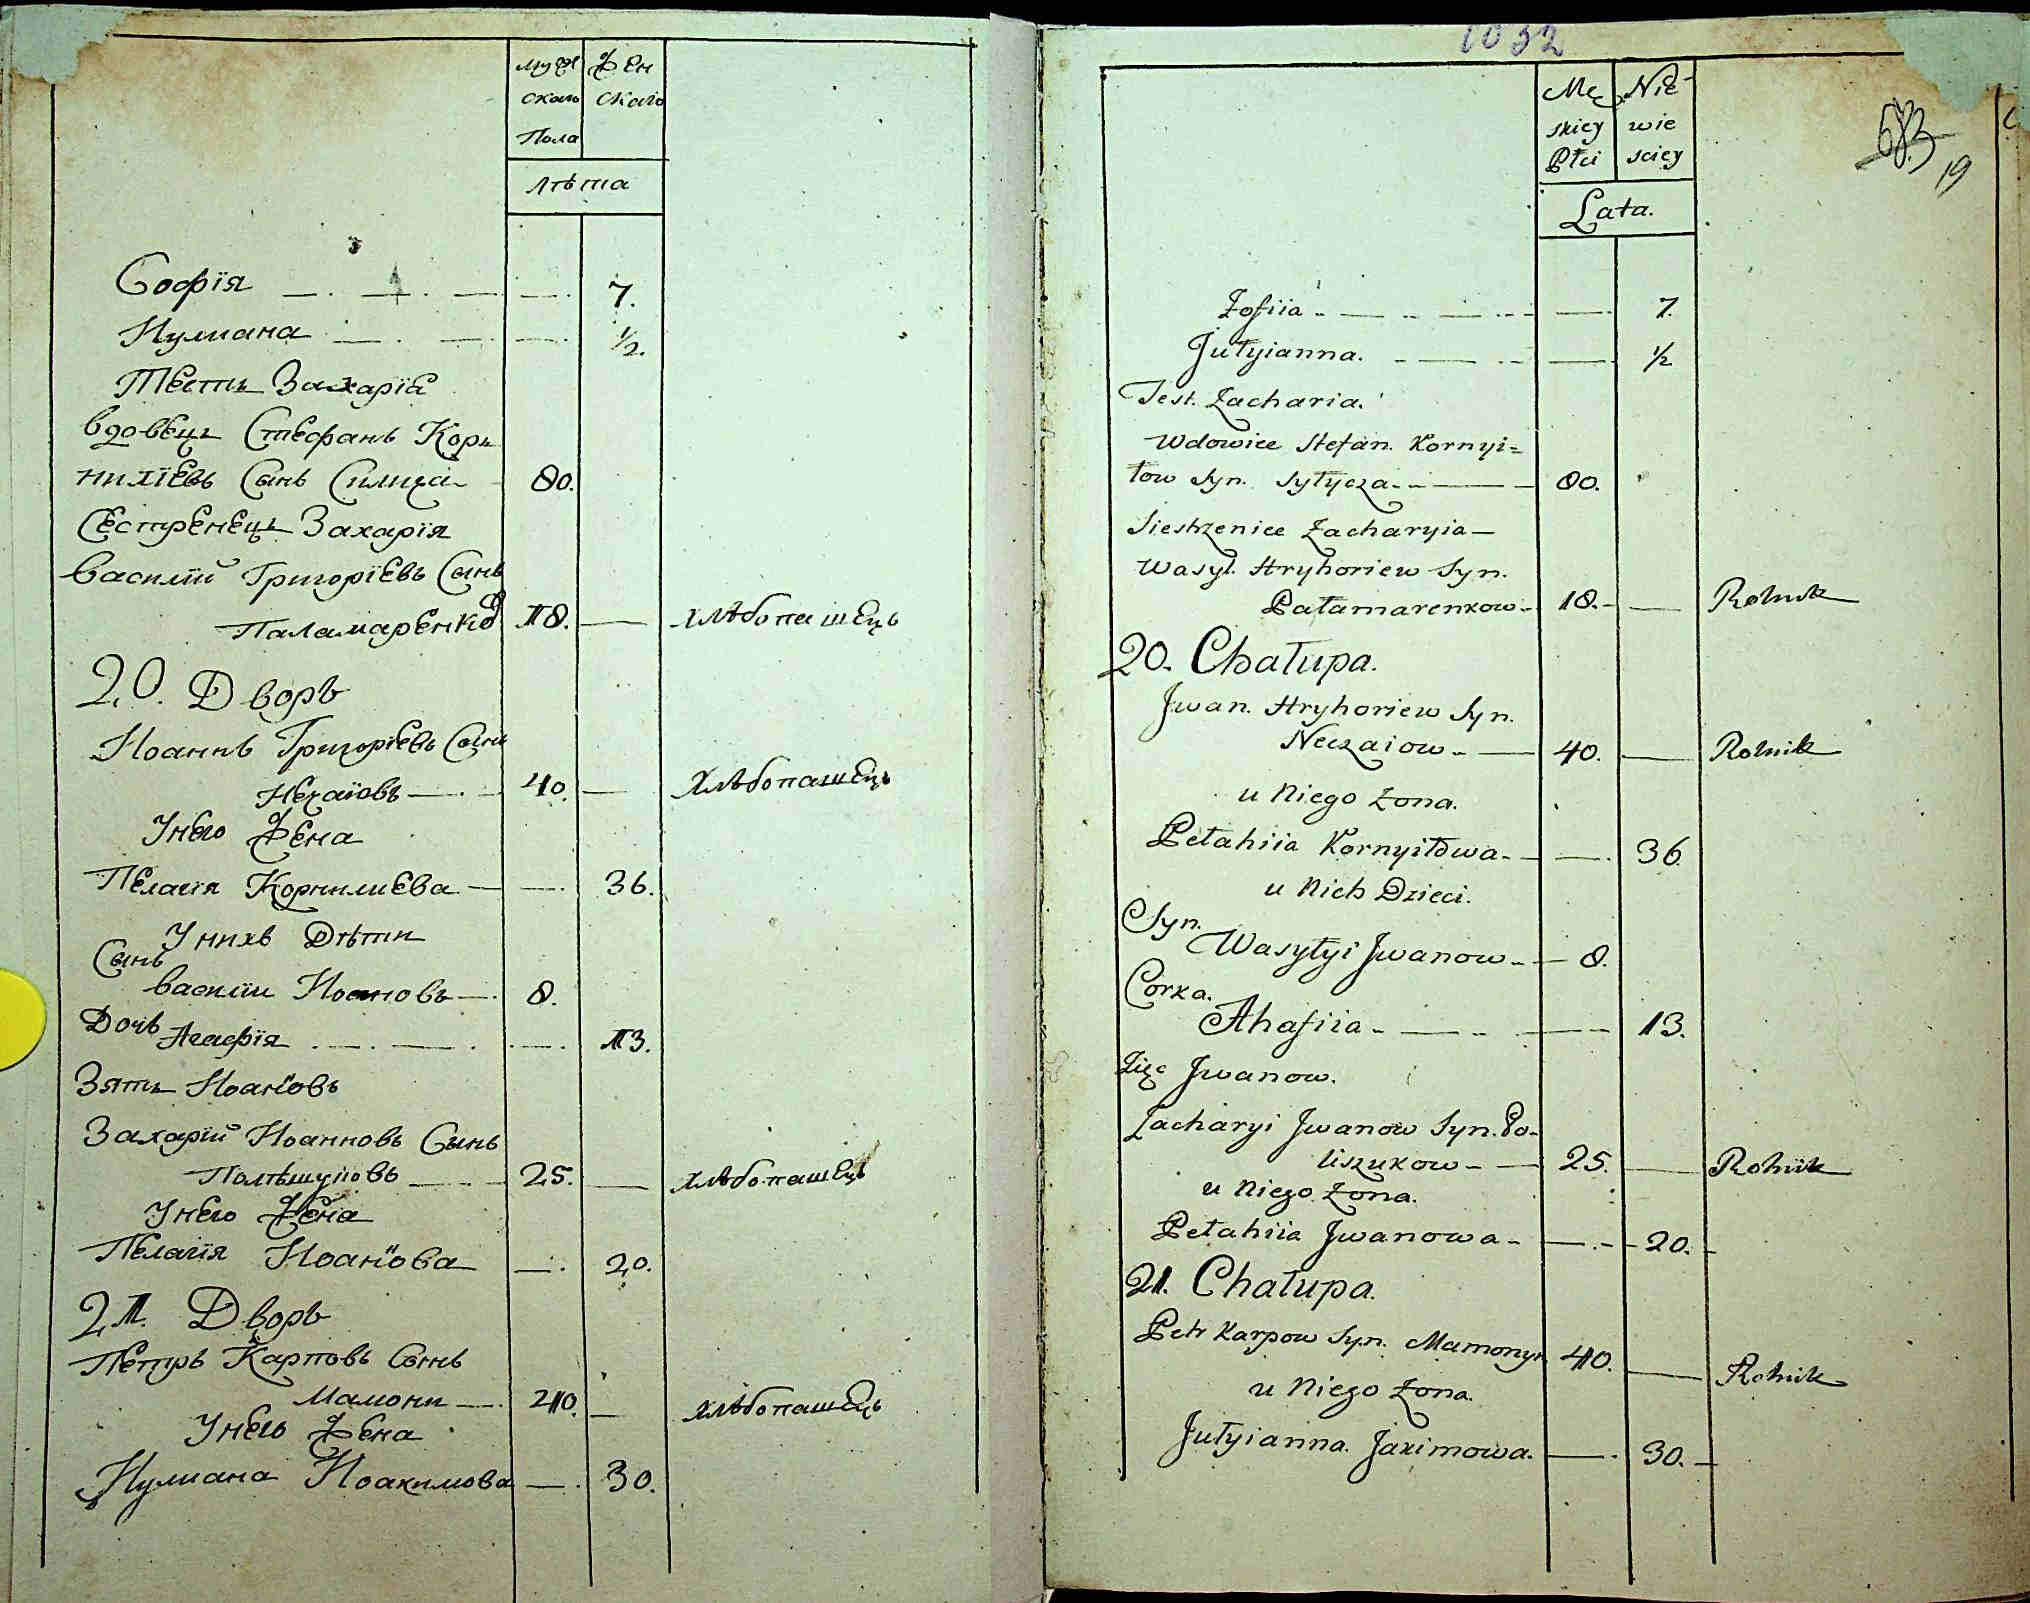 Муже Жен
скаго скаго
Пола
Лѣта
Софїя 7.
Иулиана ½.
Тесть Захарїе
вдовецъ Стефанъ Кор
нилїевъ Сынъ Силича 80.
Сестренецъ Захарїя
Василїй Григорїевъ Сынъ
Паламаренко 18. — хлѣбопашецъ
20. Дворъ
Иоаннъ Григорїевъ Сынъ
Нечаїовъ — 40. — Хлѣбопашецъ
Унего Жена
Пелагїя Корнилиева — 36.
Унихъ Дѣти
Сынъ
василїи Иоановъ — 8.
Дочь Агафїя 13.
Зять Иоанїовъ
Захарїй Иоанновъ Сынъ
Полѣшуковъ 25. — Хлѣбопашецъ
Унего Жена
Пелагїя Иоанїова — 20.
21. Дворъ
Петръ Карповъ Сынъ
Мамони — 40. — хлѣбопашецъ
Унего Жена
Иулиана Иоакимова — 30.
1032
683
19
Mę Nie
skiey wie
Płci sciey
Lata.
Zofiia 7.
Jułyianna. ½
Test. Zacharia.
Wdowiec Stefan. Kornyi=
łow Syn. Syłycza 80.
Siestrzeniec Zacharyia —
Wasyl. Hryhoriew Syn.
Pałamarenkow 18. — Rolnik
20. Chałupa.
Jwan. Hryhoriew Syn.
Neczaiow — 40. — Rolnik
u Niego Zona.
Pełahiia Kornyiłowa — 36.
u Nich Dzieci.
Syn.
Wasyłyi Jwanow — 8.
Corka.
Ahafiia — 13.
Zięc Jwanow.
Zacharyi Jwanow Syn. Po-
liszukow — 25. — Rolnik
u Niego Zona.
Pełahiia Jwanowa — 20.
21. Chałupa.
Petr Karpow Syn. Mamonyn 40. — Rolnik
u Niego Zona.
Jułyianna. Jakimowa. — 30.